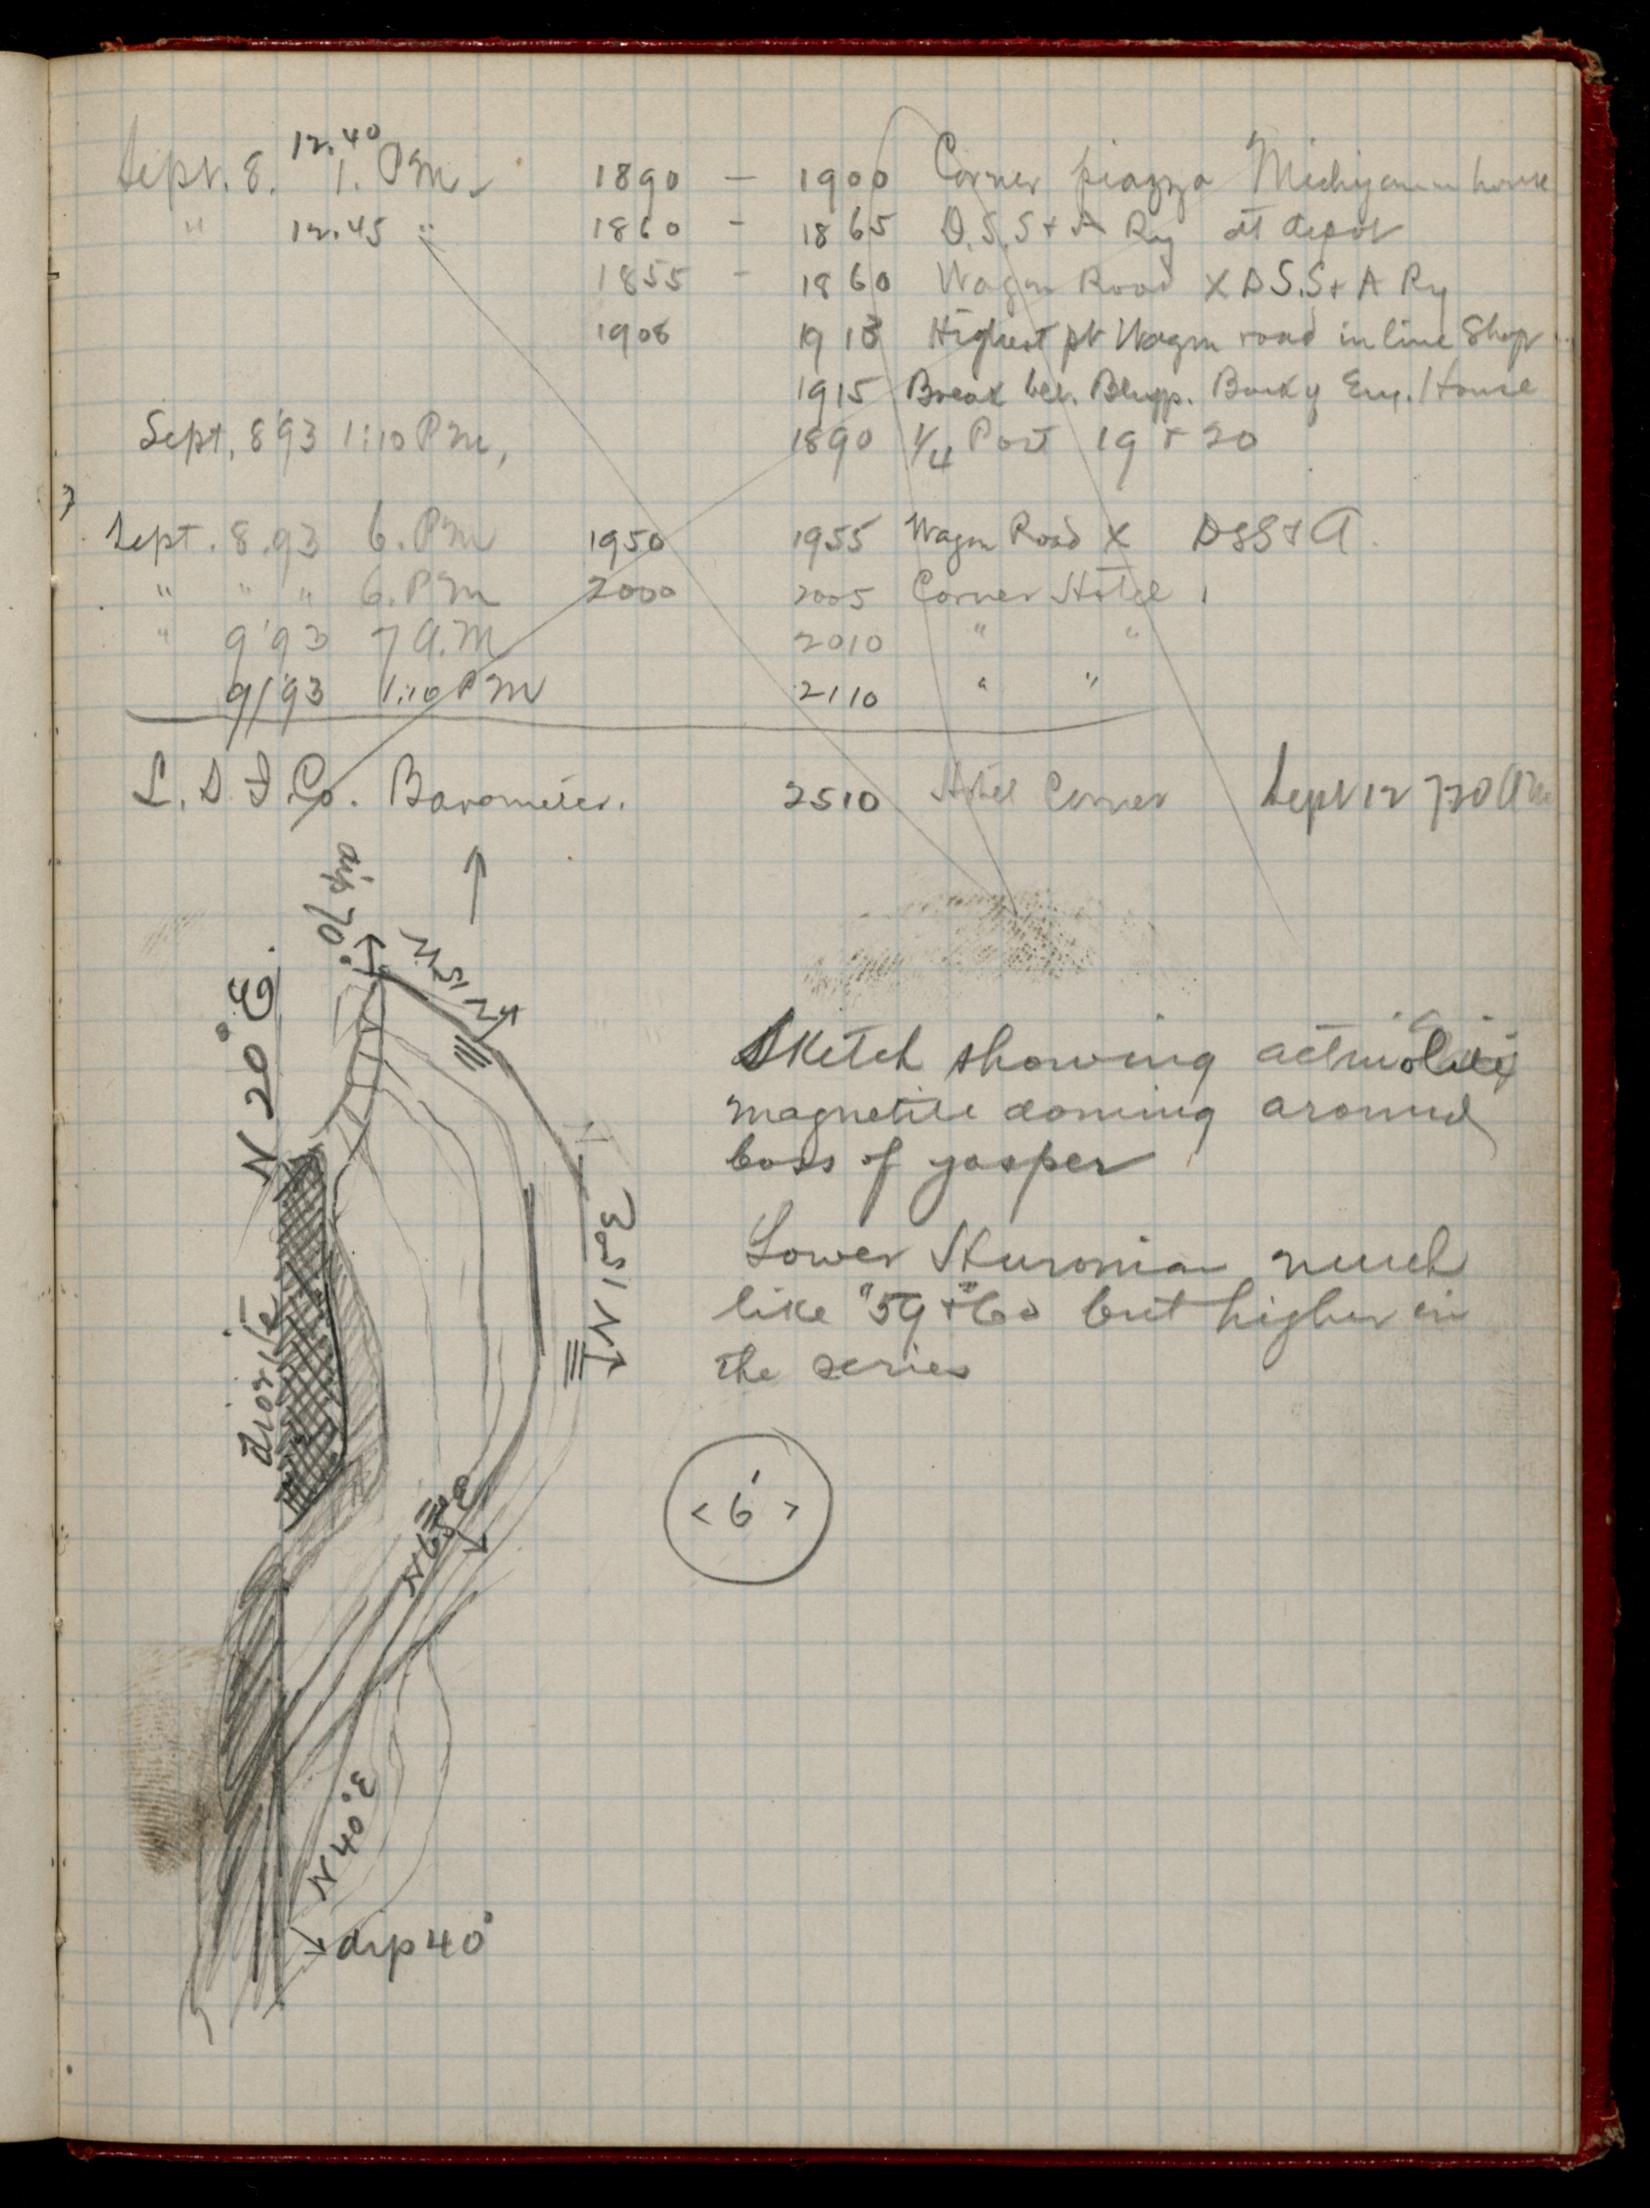 12.40
Sept. 8. 1. PM. 1890 – 1900 Corner piazza Michigamme house
" 12.45 " 1860 – 1865 D.S.S + A Ry at depot
1855 – 1860 Wagon Road X D S.S + A Ry
1908 1913 Highest pt Wagon road in line Shop
1915 Break bet. Back of Eng. House
Sept. 8 '93 1:10 PM, 1890 1/4 Post 19 + 20
Sept. 8. 93 6. PM 1950 1955 Wagon Road X DSS + A.
" " " 6. PM 2000 2005 Corner Hotel
" 9 '93 7 A.M 2010 " "
9/ '93 1:10 PM 2110 " "
Co. Barometer. 2510 Hotel Corner Sept 12 730 AM
dip 70°
N 15 W
N 20° E.
Sketch showing actinolitic
magnetite doming around
boss of jasper
N 15° E
Lower Huronian much
like "59 + "60 but higher in
the series
diorite
< 6' >
N 40° E
dip 40°